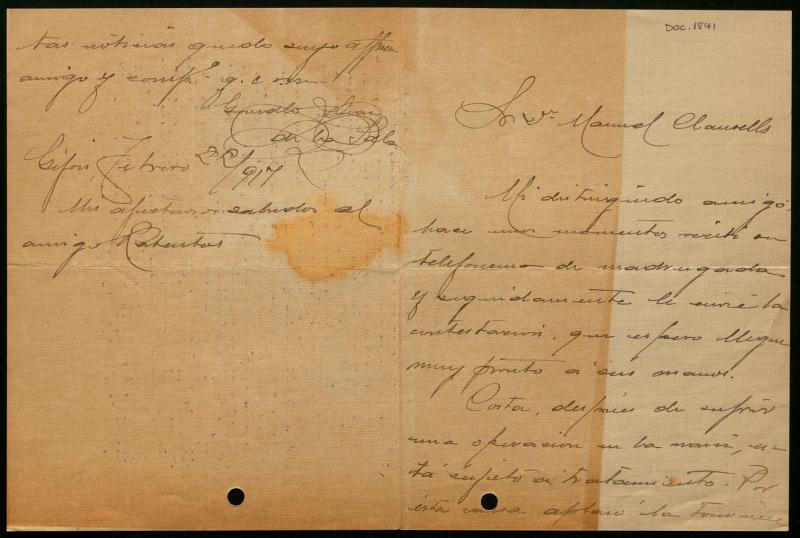 Doc. 1841
Sr Dn Manuel Clausells
Mi distinguido amigo:
hace unos momentos recibí su
telefonema de madrugada
y seguidamente le envié la
contestación, que espero llegue
muy pronto á sus manos.
Costa, después de sufrir
una operación en la nariz, es-
tá sujeto á tratamiento. Por
ésta causa aplazó la tournée
tas noticias quedo suyo affmo
amigo y q. e. s. m.
de la Sala
Gijón, Febrero 22/917
Mis afectuosos saludos al
amigo Rabentós